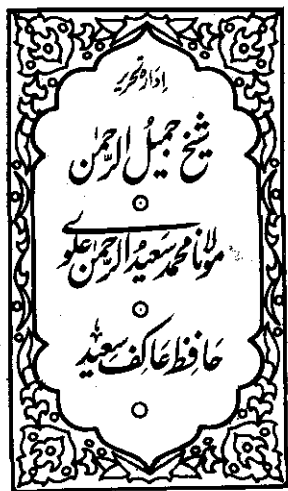 ادارہ تحریر
شیخ جمیل الرحمٰن
مولانا محمد سعید الرحمٰن علوی
حافظ عاکف سعید